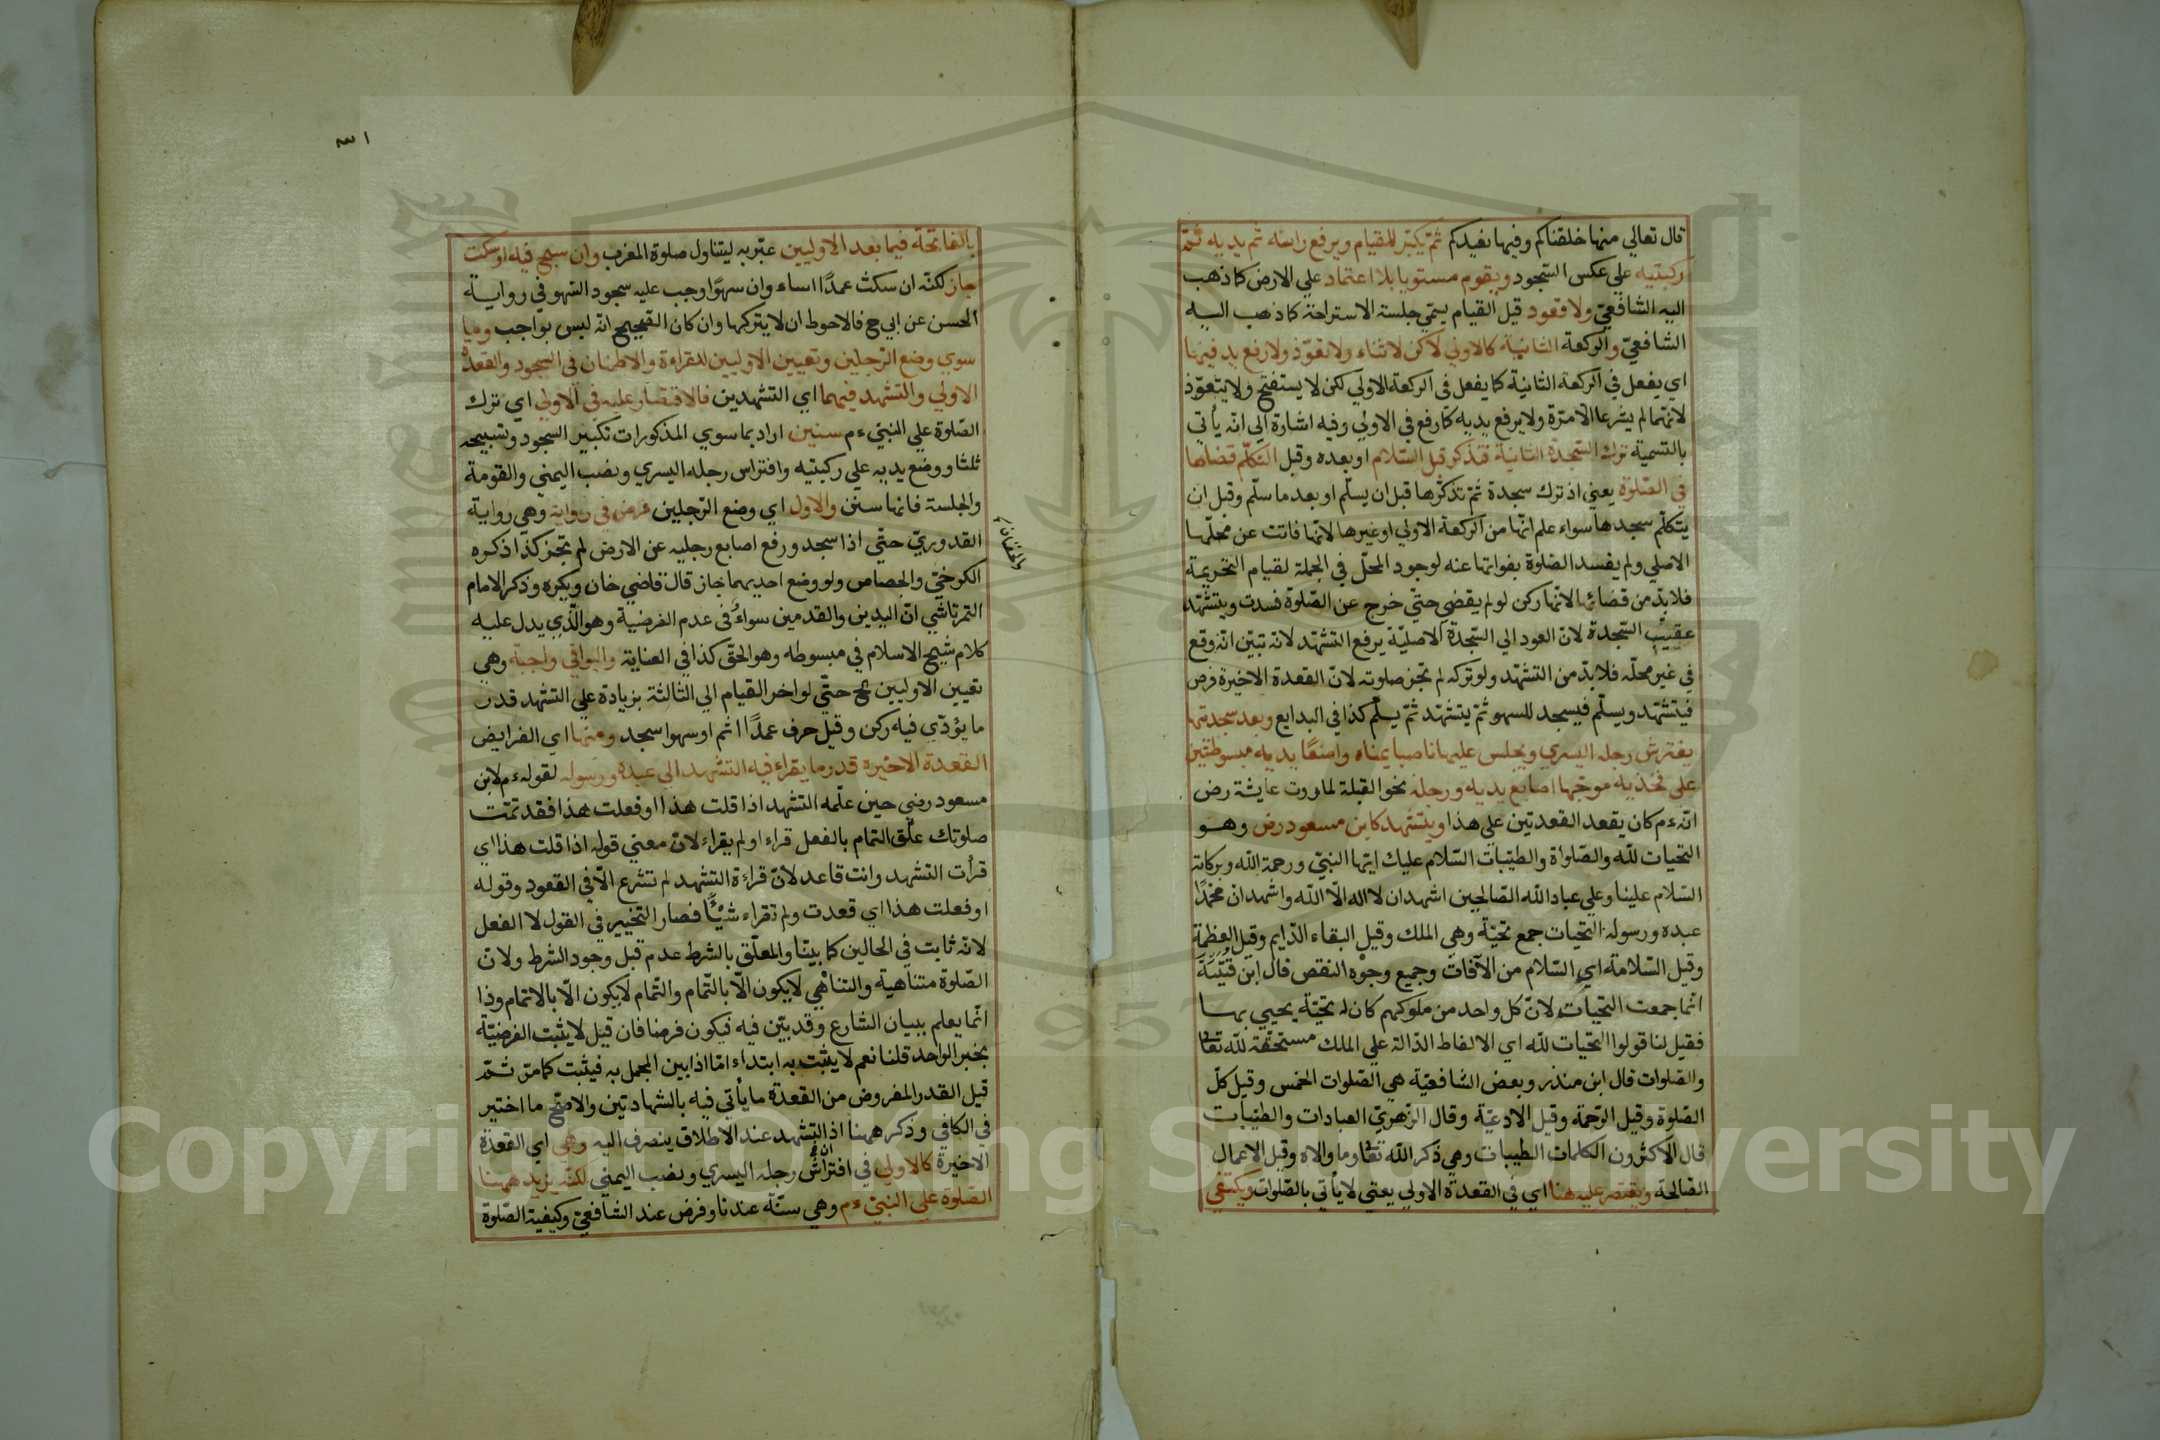 قال تعالي منها خلقناكم وفيها نعيدكم ثم يكبر للقيام ويرفع راسه ثم يديه ثم
ركبتيه علي عكس السجود ويقوم مستويا بلا اعتماد علي الارض كما ذهب
اليه الشافعيّ ولا قعود قبل القيام يسمي جلسة الاستراحة كما ذهب اليه
الشافعيّ والركعة الثانية كالاولي لكن لا ثناء ولا تعوّذ ولا رفع يد فيها
اي يفعل في الركعة الثانية كما يفعل في الركعة الاولي لكن لا يستفتح ولا يتعوّذ
لانهما لم يشرعا الا مرّة ولا يرفع يديه كما رفع في الاولي وفيه اشارة الي انّه يأتي
بالتسمية ترك السجدة الثانية فتذكر قبل السّلام او بعده وقبل التكلّم قضاها
في الصّلوة يعني اذ ترك سجدة ثم تذكّرها قبل ان يسلّم او بعد ما سلّم وقبل ان
يتكلّم سجدها سواء علم انّها من الركعة الاولي او غيرها لانّها فاتت عن محلّها
الاصلي ولم يفسد الصّلوة بفواتها عنه لوجود المحلّ في الجملة لقيام التحريمة
فلا بدّ من قضائها لانّها ركن لو لم يقضي حتّي خرج عن الصّلوة فسدت ويتشهّد
عقيب السّجدة لانّ العود الي السّجدة الاصليّة يرفع التشهّد لانّه تبيّن انّه وقع
في غير محلّه فلا بدّ من التشهّد ولو تركه لم تجز صلوته لانّ القعدة الاخيرة فرض
فيتشهّد ويسلّم فيسجد للسهو ثمّ يتشهّد ثمّ يسلّم كذا في البدايع وبعد سجدتيها
يفترش رجله اليسري ويجلس عليها ناصبا يمناه واضعًا يديه مبسوطتين
علي فخذيه موجّها اصابع يديه ورجله نحو القبلة لما روت عايشة رض
انّه ءم كان يقعد القعدتين علي هذا ويتشهّد كابن مسعود رض وهو
التحيات للّه والصّلواة والطيّبات السّلام عليك ايّها النبيّ ورحمة اللّه وبركاته
السّلام علينا وعلي عباد اللّه الصّالحين اشهد ان لا اله الّا اللّه واشهد انّ محمّدًا
عبده ورسوله التحيات جمع تحيّة وهي الملك وقيل البقاء الدّايم وقيل العظمة
وقيل السّلامة اي السّلام من الآفات وجميع وجوه النقص قال ابن قُتَيبَة
انّما جمعت التحيّات لانّ كل واحد من ملوكهم كان له تحيّة يحيي بها
فقيل لنا قولوا التحيّات للّه اي الالفاظ الدّالة علي الملك مستحقّة للّه تعالي
والصّلوات قال ابن منذر وبعض الشافعيّة هي الصّلوات الخمس وقيل كلّ
الصّلوة وقيل الرّحمة وقيل الادعيّة وقال الزّهريّ العبادات والطيّبات
قال الاكثرون الكلمات الطيبات وهي ذكر اللّه تعالي وما والاه وقيل الاعمال
الصّالحة ويقتصر عليه هنا اي في القعدة الاولي يعني لا يأتي بالصّلوات ويكتفي
٣١
بالفاتحة فيما بعد الاوليين عبّر به ليتناول صلوة المغرب وان سبح فيه او سكت
جاز لكنّه ان سكت عمدًا اساء وان سهوًا وجب عليه سجود السّهو في رواية
الحسن عن ابي ح فالاحوط ان لا يتركها وان كان الصّحيح انّه ليس بواجب وما
سوي وضع الرّجلين وتعيين الاوليين للقراءة والاطمئنان في السجود والقعدة
الاولي والتشهد فيهما اي التشهدين فالاقتصار عليه في الاولي اي ترك
الصّلوة علي النبيّ ءم سنين اراد بما سوي المذكورات تكبير السجود وتسبيحه
ثلثا ووضع يديه علي ركبتيه وافتراس رجله اليسري ونصب اليمني والقومة
والجلسة فانها سنن والاول اي وضع الرّجلين فرض في رواية وهي رواية
القدوريّ حتّي اذا سجد ورفع اصابع رجليه عن الارض لم تجز كذا ذكره
الكرخيّ والجصاص ولو وضع احديهما جاز قال قاضي خان ويكره وذكر الامام
التمرتاشي انّ اليدين والقدمين سواءٌ في عدم الفرضيّة وهو الّذي يدل عليه
كلام شيخ الاسلام في مبسوطه وهو الحقّ كذا في العناية والبواقي واجبة وهي
تعيين الاوليين حتّي لو اخر القيام الي الثالثة بزيادة علي التشهد قدر
ما يؤدّي فيه ركن وقيل حرف عمدًا اثم او سهوا سجد ومنها اي الفرايض
القعدة الاخيرة قدر ما يقراء فيه التشهد الي عبده ورسوله لقوله ءم لابن
مسعود رضي حين علّمه التشهد اذا قلت هذا او فعلت هذا فقد تمّت
صلوتك علّق التمام بالفعل قراء او لم يقراء لانّ معني قوله اذا قلت هذا اي
قرأت التشهد وانت قاعد لانّ قراءة التشهد لم تشرع الّا في القعود وقوله
او فعلت هذا اي قعدت ولم تقراء شيئًا فصار التخيير في القول لا الفعل
لانّه ثابت في الحالين كما بيّنا والمعلّق بالشرط عدم قبل وجود الشرط ولانّ
الصّلوة متناهية والتناهي لا يكون الّا بالتّمام والتّمام لا يكون الّا بالاتمام وذا
انّما يعلم ببيان الشارع وقد بيّن فيه فيكون فرضا فان قيل لا يثبت الفرضيّة
بخبر الواحد قلنا نعم لا يثبت به ابتداء امّا اذا بين المجمل به فيثبت كما مرّ ثمّ
قيل القدر المفروض من القعدة ما يأتي فيه بالشهادتين والاصحّ ما اختير
في الكافي وذكر ههنا اذ التشهد عند الاطلاق ينصرف اليه وهي اي القعدة
الاخيرة كالاولي في افتراش رجله اليسري ونصب اليمني لكنّه يزيد ههنا
الصّلوة علي النبيّ ءم وهي سنّة عندنا وفرض عند الشافعيّ وكيفية الصّلوة
Copyright © King Saud University
1957